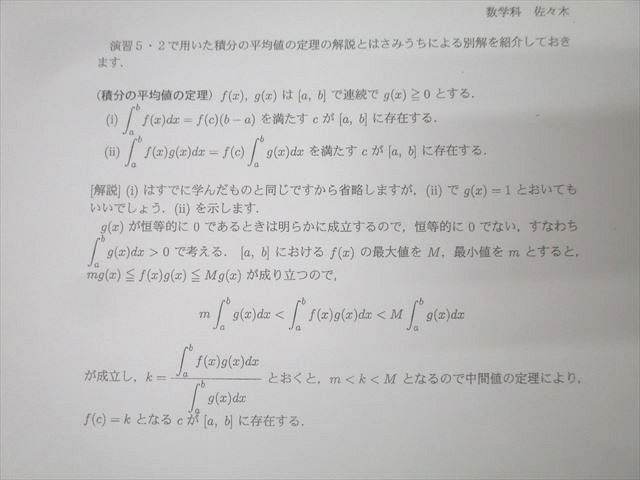 数学科 佐々木
演習５・２で用いた積分の平均値の定理の解説とはさみうちによる別解を紹介しておき
ます．
（積分の平均値の定理）f(x), g(x) は [a, b] で連続で g(x) ≧ 0 とする．
(i) ∫_a^b f(x)dx = f(c)(b − a) を満たす c が [a, b] に存在する．
(ii) ∫_a^b f(x)g(x)dx = f(c) ∫_a^b g(x)dx を満たす c が [a, b] に存在する．
[解説] (i) はすでに学んだものと同じですから省略しますが，(ii) で g(x) = 1 とおいても
いいでしょう．(ii) を示します．
g(x) が恒等的に 0 であるときは明らかに成立するので，恒等的に 0 でない，すなわち
∫_a^b g(x)dx > 0 で考える． [a, b] における f(x) の最大値を M，最小値を m とすると，
mg(x) ≦ f(x)g(x) ≦ Mg(x) が成り立つので，
m ∫_a^b g(x)dx < ∫_a^b f(x)g(x)dx < M ∫_a^b g(x)dx
が成立し，k = ∫_a^b f(x)g(x)dx / ∫_a^b g(x)dx とおくと，m < k < M となるので中間値の定理により，
f(c) = k となる c が [a, b] に存在する．